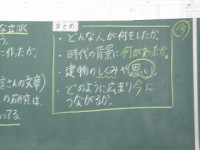 まとめ
・どんな人が何をしたか。
・時代の背景に何があったか。
・建物のしくみや思い。
・どのように広まり今に
つながるか。
な立派
に作ったか。
さんの文章)
の研究は、
ってる